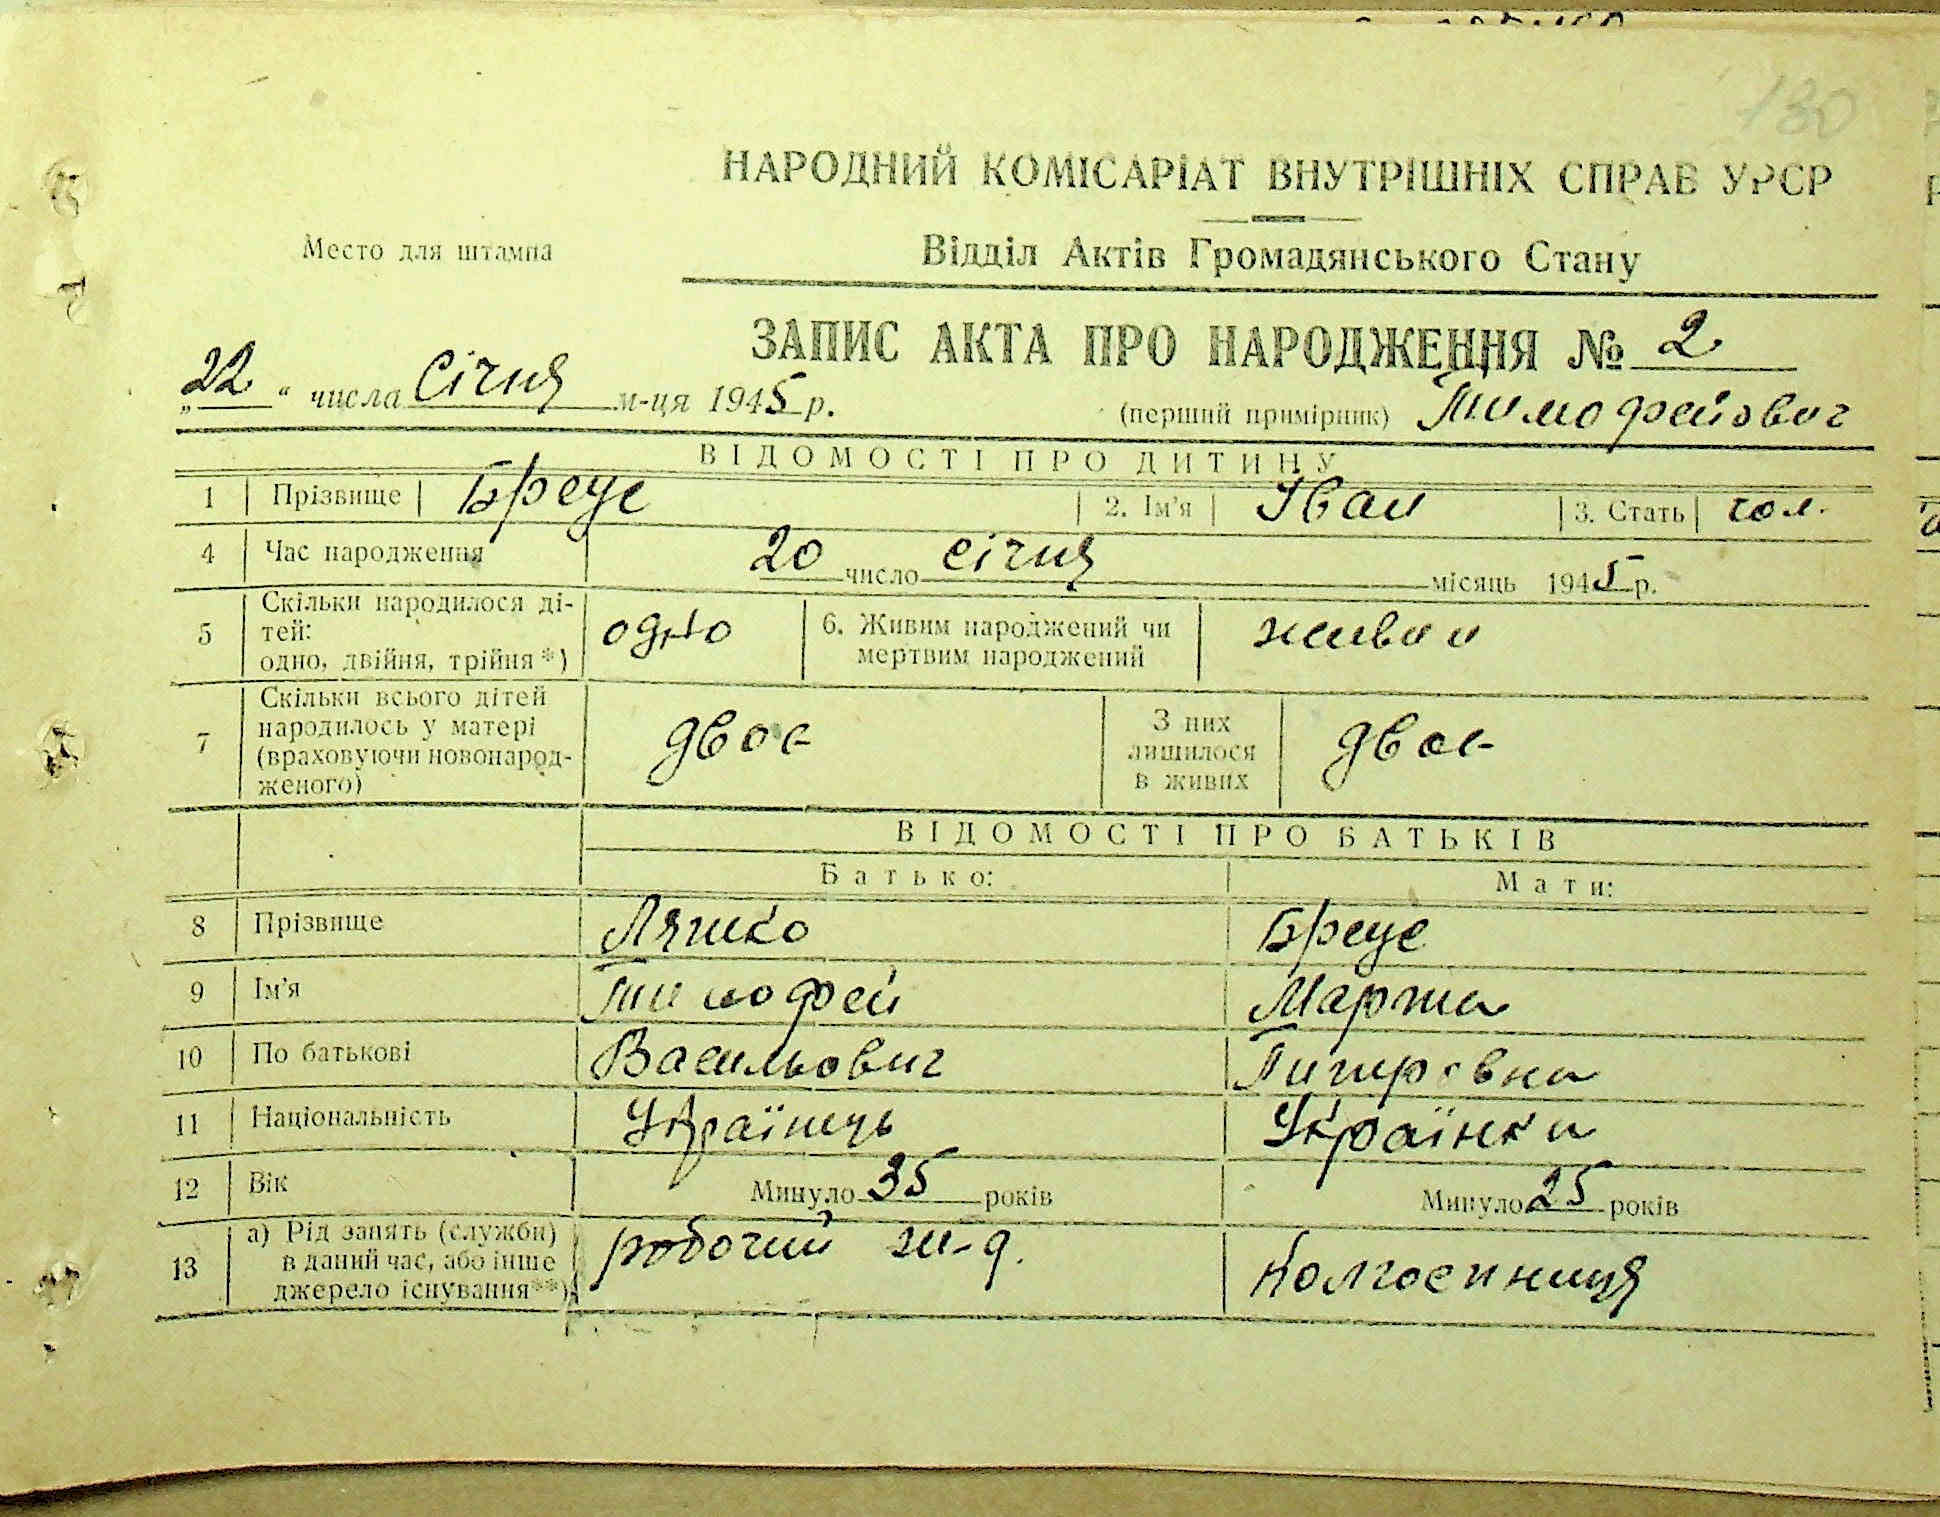 130
НАРОДНИЙ КОМІСАРІАТ ВНУТРІШНІХ СПРАВ УРСР
Место для штампа
Відділ Актів Громадянського Стану
ЗАПИС АКТА ПРО НАРОДЖЕННЯ № 2
„22“ числа Січня м-ця 1945 р.
(перший примірник) Тимофейович
ВІДОМОСТІ ПРО ДИТИНУ
1 Прізвище Бреус 2. Ім'я Іван 3. Стать чол.
4 Час народження 20 число січня місяць 1945 р.
5 Скільки народилося ді-
тей:
одно, двійня, трійня*) одно 6. Живим народжений чи
мертвим народжений живим
7 Скільки всього дітей
народилось у матері
(враховуючи новонарод-
женого) двоє З них
лишилося
в живих двоє
ВІДОМОСТІ ПРО БАТЬКІВ
Батько: Мати:
8 Прізвище Ляшко Бреус
9 Ім'я Тимофей Марта
10 По батькові Васильович
11 Національність Українець Українка
12 Вік Минуло 35 років Минуло 25 років
13 а) Рід занять (служби)
в даний час, або інше
джерело існування**) робочий ж-д. Колгоспниця